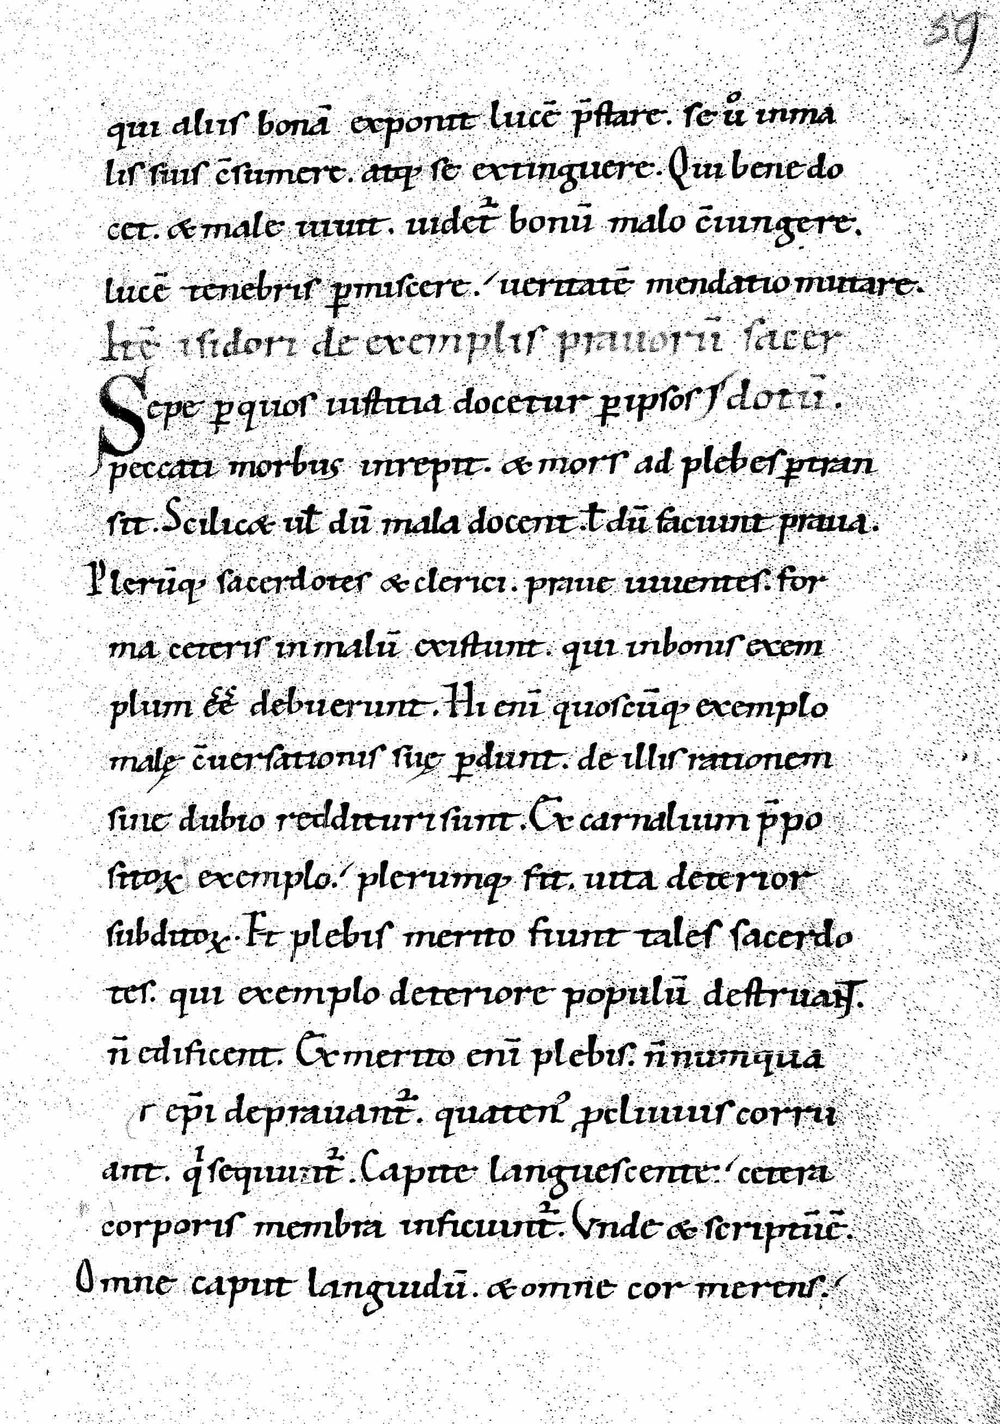 59
qui aliis bonā exponit lucē p̄stare. se ůo in ma
lis suis c̄sumere. atq; se extinguere. Qui bene do
cet. & male uiuit. uidet᷑ bonū malo c̄iungere.
lucē tenebris ꝑmiscere. ueritatē mendatio mutare.
Itē isidori de exemplis prauorū sacer
Sepe ꝑ quos iustitia docetur ꝑ ipsos dotū.
peccati morbus inrepit. & mors ad plebes ꝑtran
sit. Scilic& uł dū mala docent. ł dū faciunt praua.
Plerūq; sacerdotes & clerici. praue uiuentes. for
ma ceteris in malū existunt. qui in bonis exem
plum ēē debuerunt. Hi enī quoscūq; exemplo
malę c̄uersationis suę ꝑdunt. de illis rationem
sine dubio reddituri sunt. Ex carnalium p̄po
sitoꝝ exemplo. plerumq; fit. uita deterior
subditoꝝ. Et plebis merito fiunt tales sacerdo
tes. qui exemplo deteriore populū destruant.
n̄ edificent. Ex merito enī plebis. n̄numqua
r ep̄i deprauant᷑. quaten᷒ ꝓcliuius corru
ant. qͥ sequunt᷑. Capite languescente. cetera
corporis membra inficiunt᷑. Vnde & scriptū ē.
Omne caput languidū. & omne cor merens.